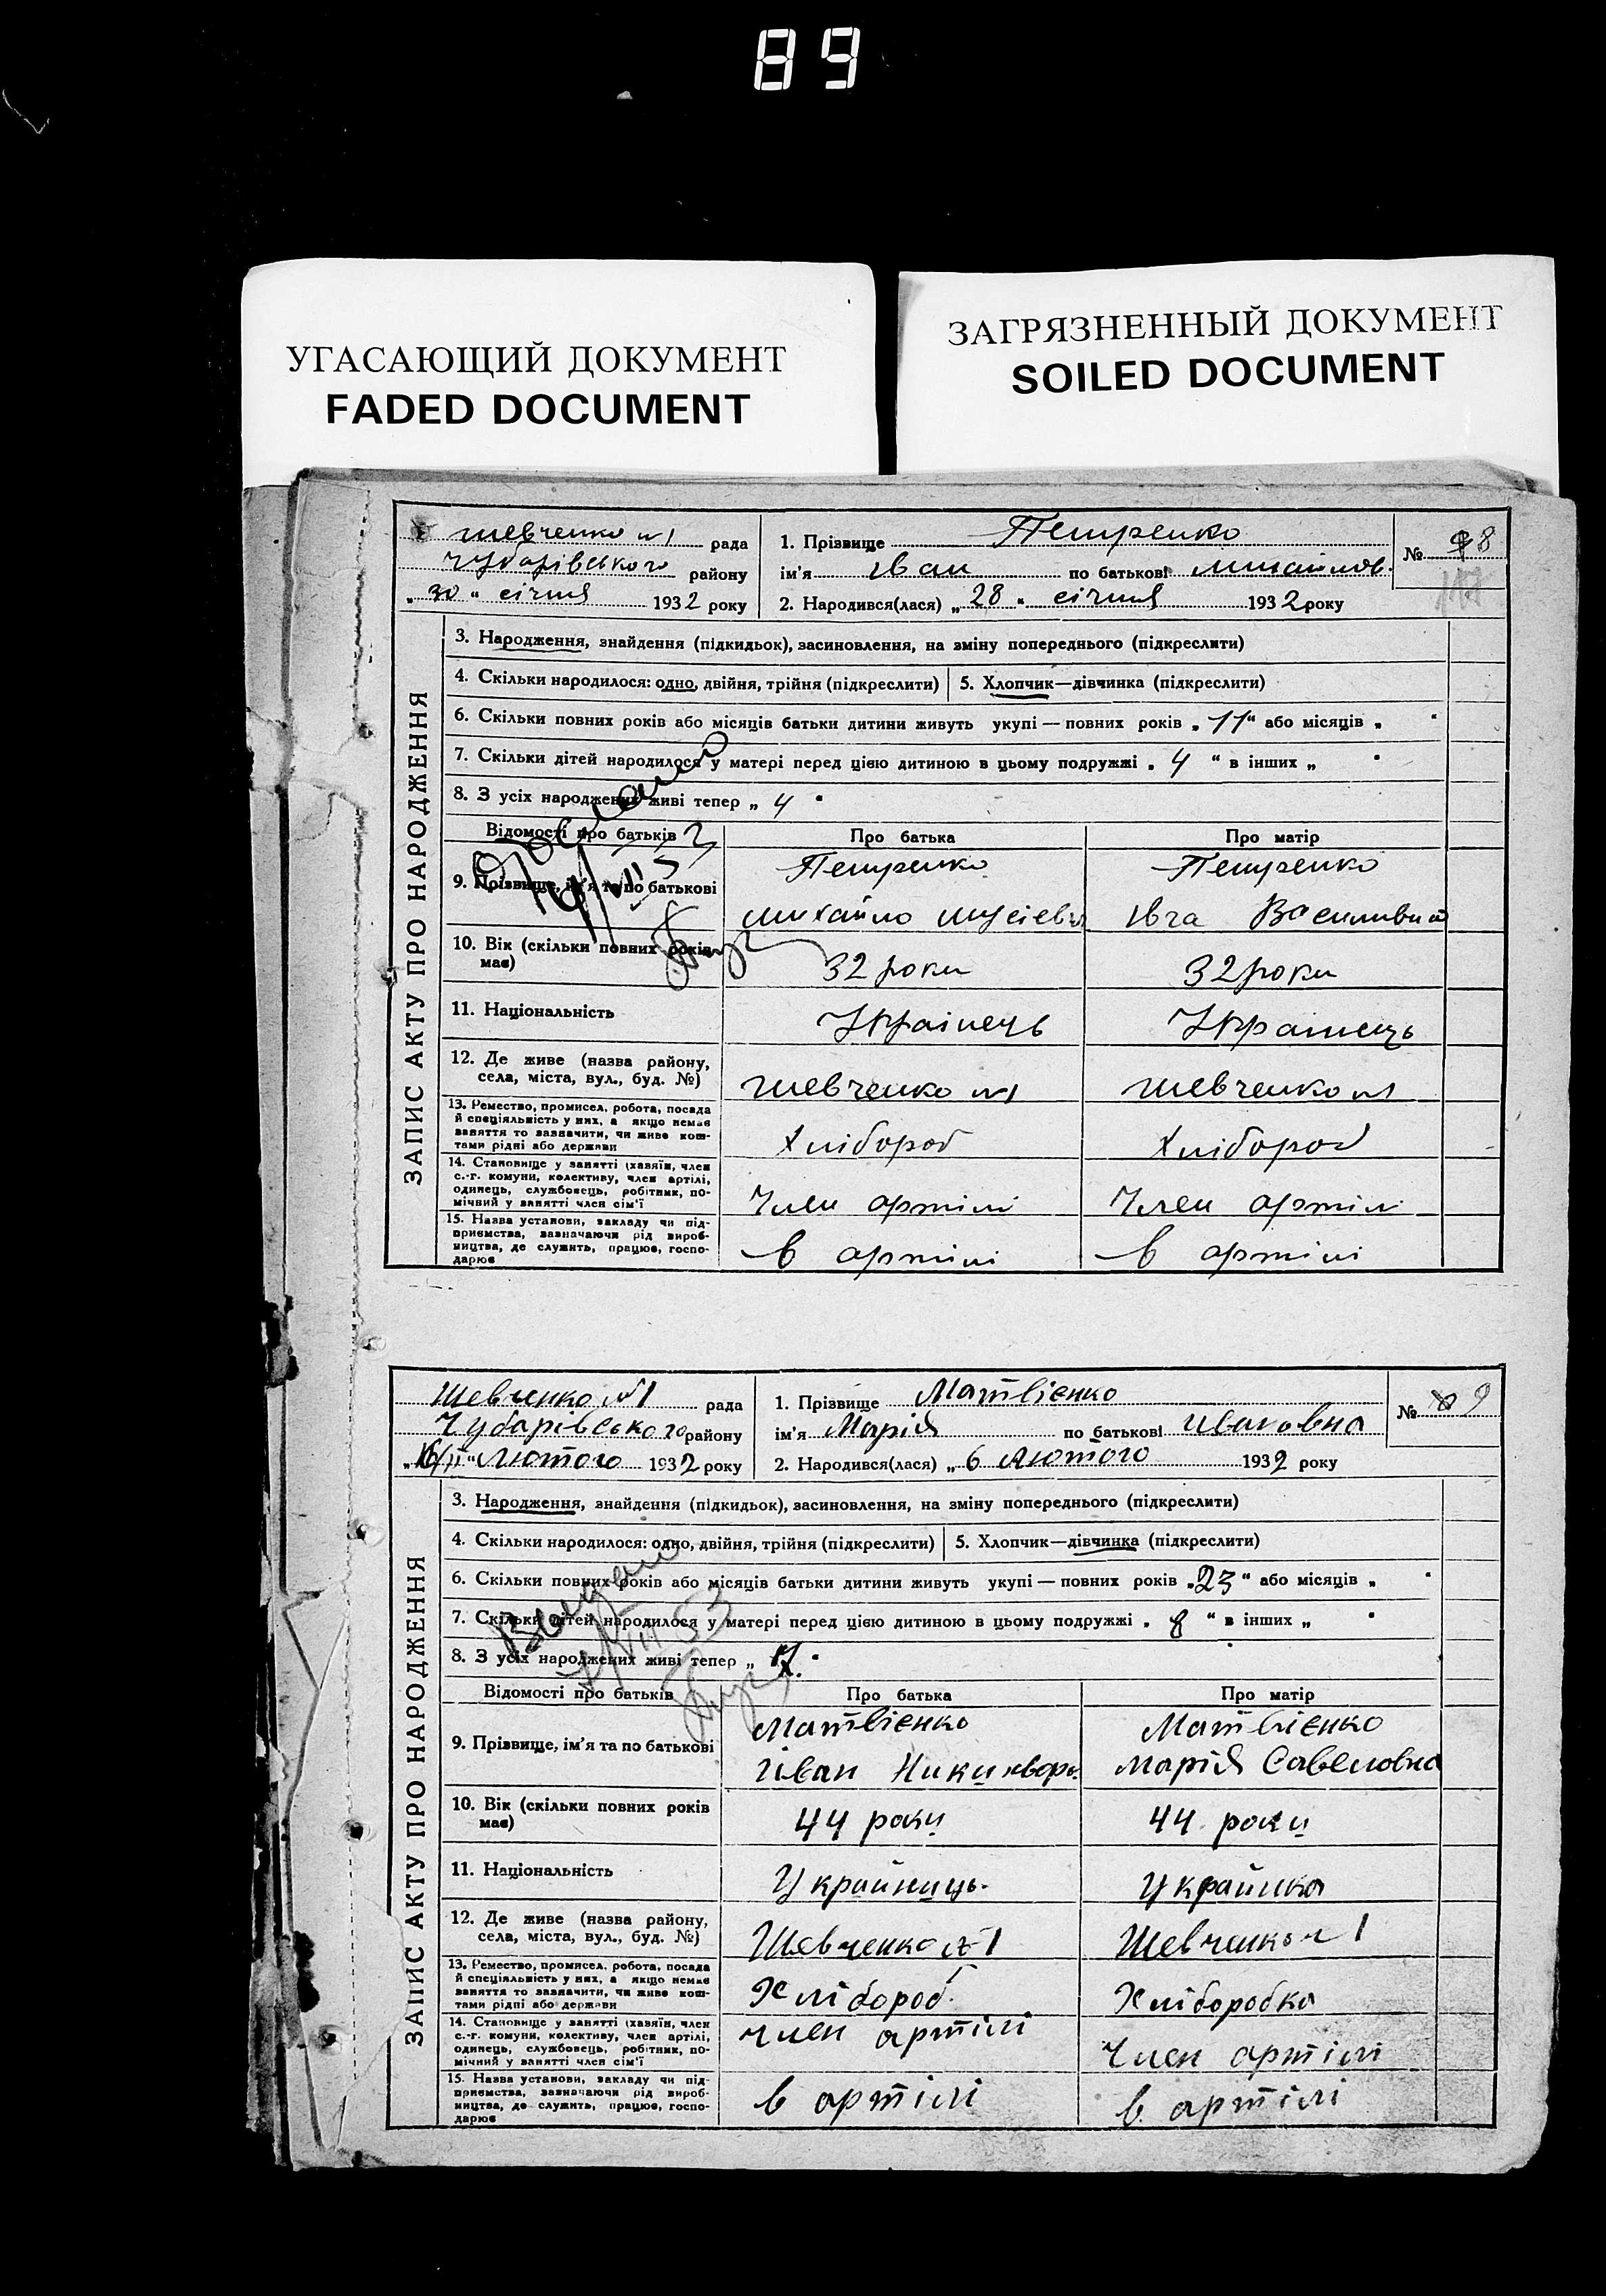 89
УГАСАЮЩИЙ ДОКУМЕНТ
FADED DOCUMENT
ЗАГРЯЗНЕННЫЙ ДОКУМЕНТ
SOILED DOCUMENT
ЗАПИС АКТУ ПРО НАРОДЖЕННЯ
Шевченко №1 рада
Чубарівського району
„30“ січня 1932 року
1. Прізвище Петренко
ім'я Іван по батькові Михайлов.
2. Народився(лася) „28“ січня 1932 року
№ 8
3. Народження, знайдення (підкидьок), засиновлення, на зміну попереднього (підкреслити)
4. Скільки народилося: одно, двійня, трійня (підкреслити) 5. Хлопчик—дівчинка (підкреслити)
6. Скільки повних років або місяців батьки дитини живуть укупі — повних років „11“ або місяців „ “
7. Скільки дітей народилося у матері перед цією дитиною в цьому подружжі „4“ в інших „ “
8. З усіх народжених живі тепер „4“
Відомості про батьків Про батька Про матір
9. Прізвище, ім'я та по батькові
Петренко Петренко
Михайло Мусієвич Івга
10. Вік (скільки повних років має) 32 роки 32 роки
11. Національність Українець Українець
12. Де живе (назва району,
села, міста, вул., буд. №) Шевченко №1 Шевченко №1
13. Ремество, промисел, робота, посада
й спеціяльність у них, а якщо немає
заняття то зазначити, чи живе кош-
тами рідні або держави Хлібороб Хлібороб
14. Становище у занятті (хазяїн, член
с.-г. комуни, колективу, член артілі,
одинець, службовець, робітник, по-
мічний у занятті член сім'ї Член артілі Член артілі
15. Назва установи, закладу чи під-
приємства, зазначаючи рід вироб-
ництва, де служить, працює, госпо-
дарює в артілі в артілі
ЗАПИС АКТУ ПРО НАРОДЖЕННЯ
Шевченко №1 рада
Чубарівського району
Лютого 1932 року
1. Прізвище Матвієнко
ім'я Марія по батькові Ивановна
2. Народився(лася) „6 Лютого 1932 року
№ 9
3. Народження, знайдення (підкидьок), засиновлення, на зміну попереднього (підкреслити)
4. Скільки народилося: одно, двійня, трійня (підкреслити) 5. Хлопчик—дівчинка (підкреслити)
6. Скільки повних років або місяців батьки дитини живуть укупі — повних років „23“ або місяців „ “
7. Скільки дітей народилося у матері перед цією дитиною в цьому подружжі „8“ в інших „ “
8. З усіх народжених живі тепер „
Відомості про батьків Про батька Про матір
9. Прізвище, ім'я та по батькові
Матвієнко Матвієнко
Іван Никифоро. Марія Савеловна
10. Вік (скільки повних років має) 44 роки 44 роки
11. Національність Українець. Українка
12. Де живе (назва району,
села, міста, вул., буд. №) Шевченко №1 Шевченко №1
13. Ремество, промисел, робота, посада
й спеціяльність у них, а якщо немає
заняття то зазначити, чи живе кош-
тами рідні або держави Хлібороб. Хліборобка
14. Становище у занятті (хазяїн, член
с.-г. комуни, колективу, член артілі,
одинець, службовець, робітник, по-
мічний у занятті член сім'ї член артілі Член артілі
15. Назва установи, закладу чи під-
приємства, зазначаючи рід вироб-
ництва, де служить, працює, госпо-
дарює в артілі в артілі